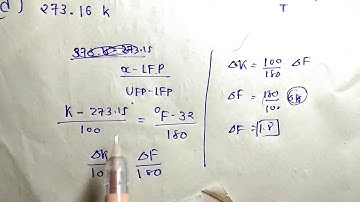 (d) 273.16 k
T
x - LFP
UFP - LFP
K - 273.15 / 100 = °F - 32 / 180
ΔK / 10 ΔF / 180
ΔK = 100/180 ΔF
ΔF = 180/100 ΔK
ΔF = 1.8